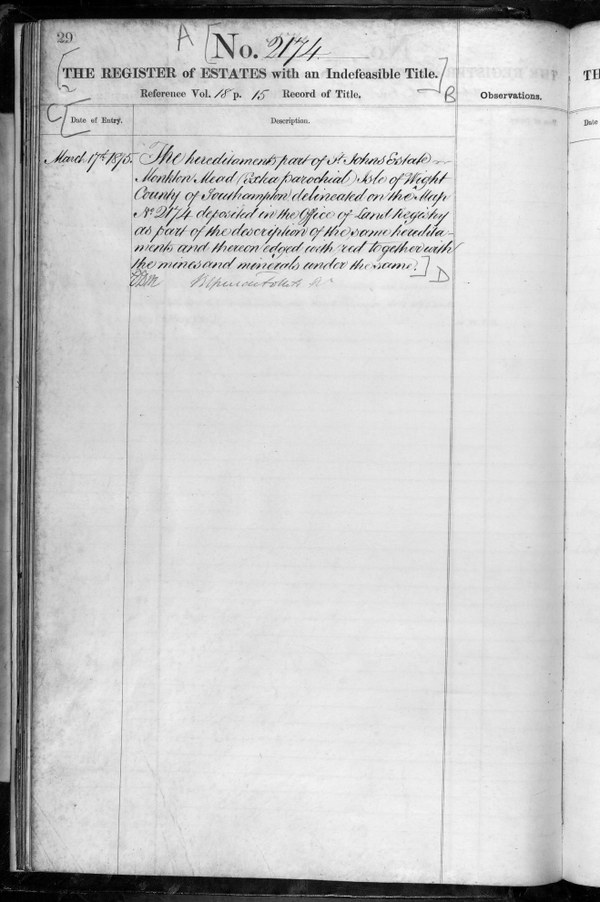 29
A [No. 2174
[2 THE REGISTER of ESTATES with an Indefeasible Title.] B
Reference Vol. 18 p. 15 Record of Title.
Observations.
C [Date of Entry.
Description.
March 17th 1875. The hereditaments part of St Johns Estate
Monkton Mead (Extra parochial) Isle of Wight
County of Southampton delineated on the Map
No 2174 deposited in the Office of Land Registry
as part of the description of the same heredita-
ments and thereon edged with red together with
the mines and minerals under the same.] D
TH
Date